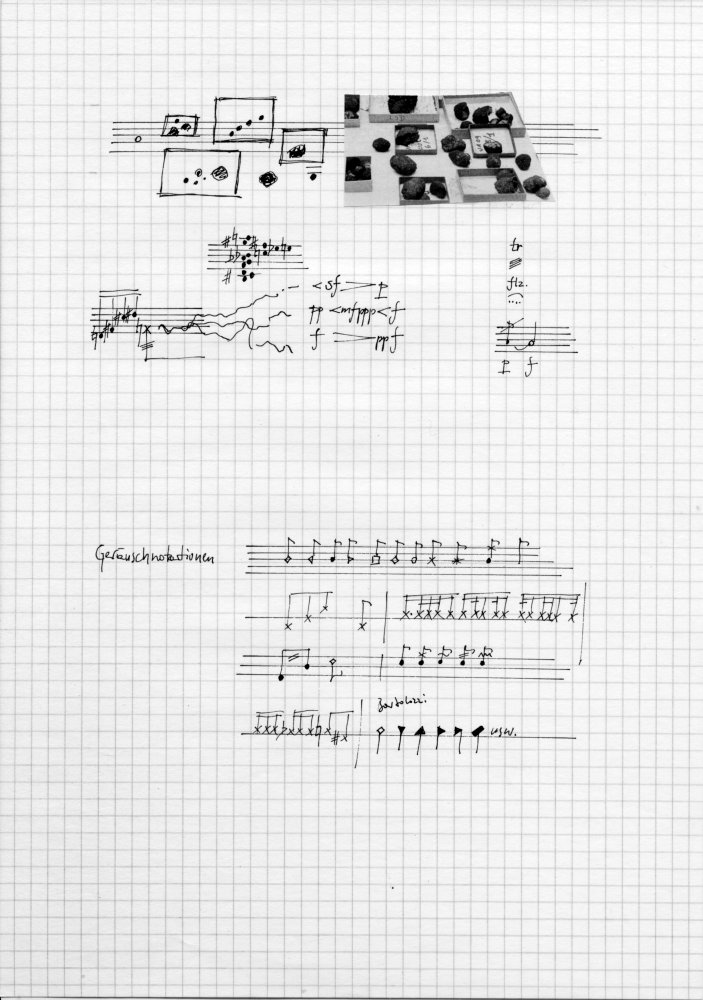 tr
flz.
< sf > p
pp < mf ppp < f
f > pp f
p f
Geräuschnotationen
Bartolozzi
usw.